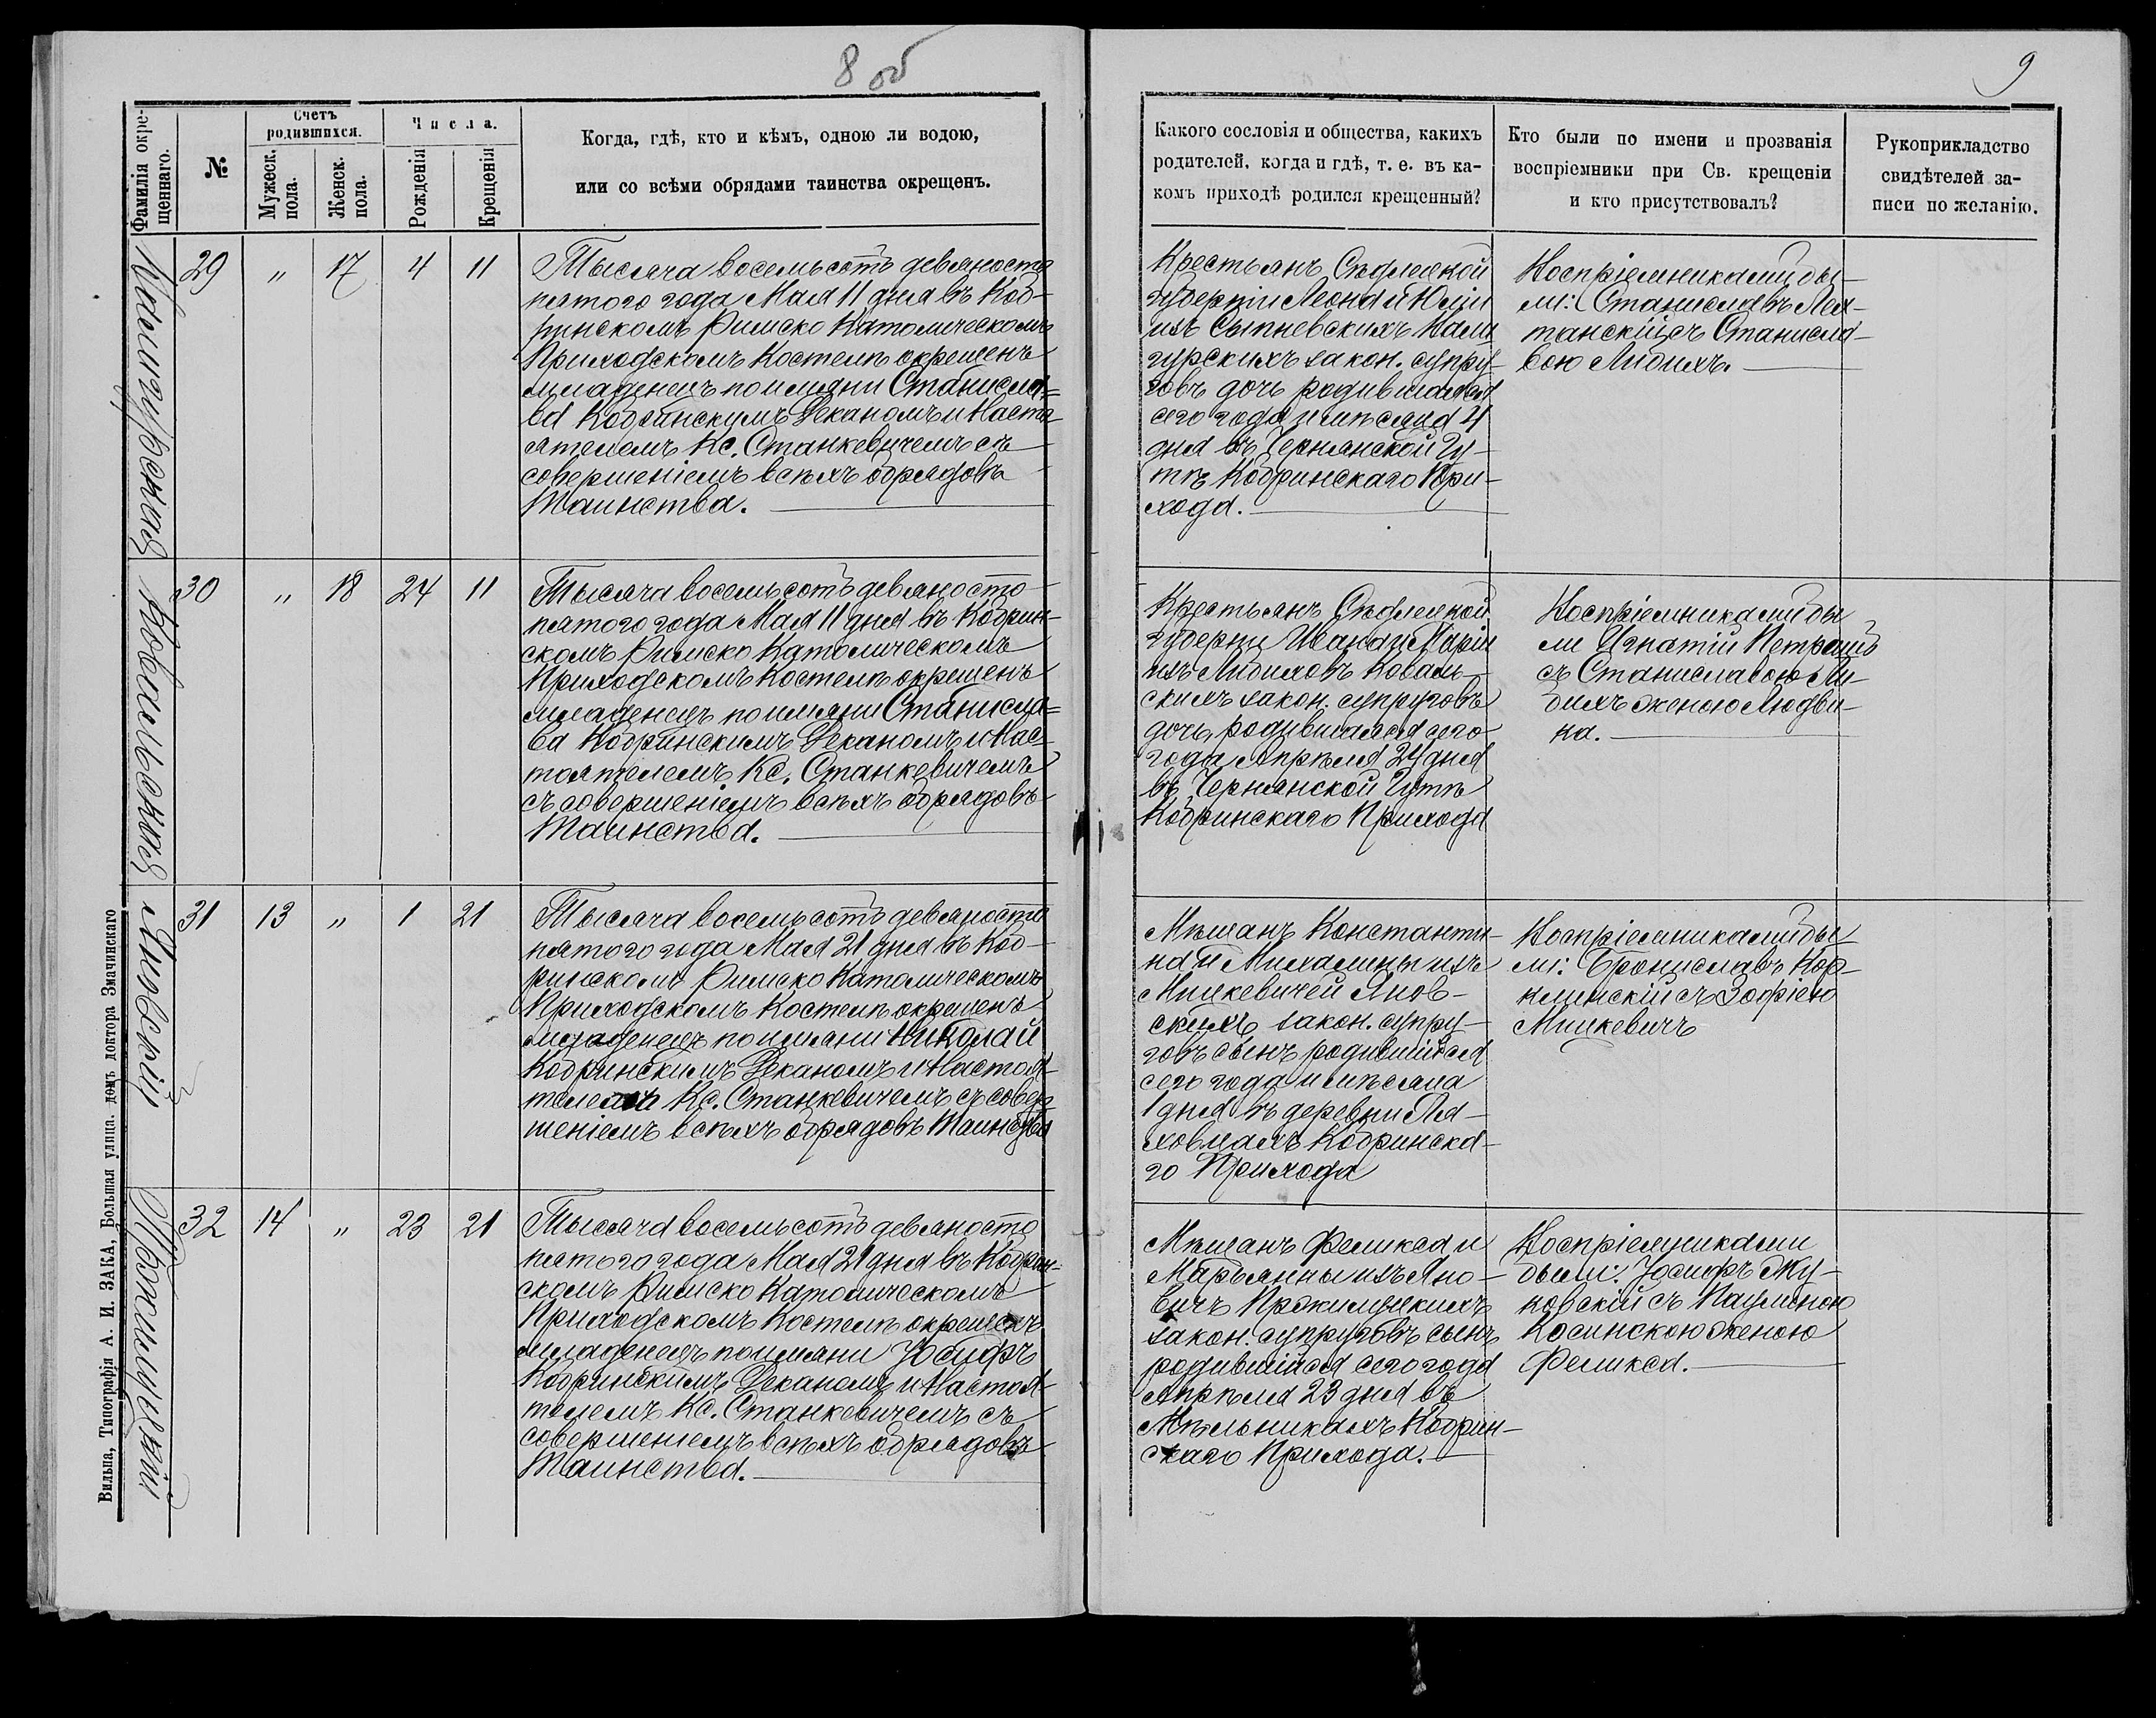 8 об
9
Фамилія окре-
щеннаго.
№
Счетъ
родившихся.
Мужеск.
пола.
Женск.
пола.
Числа.
Рожденія
Крещенія
Когда, гдѣ, кто и кѣмъ, одною ли водою,
или со всѣми обрядами таинства окрещенъ.
Какого сословія и общества, какихъ
родителей, когда и гдѣ, т. е. въ ка-
комъ приходѣ родился крещенный?
Кто были по имени и прозванія
воспріемники при Св. крещеніи
и кто присутствовалъ?
Рукоприкладство
свидѣтелей за-
писи по желанію.
29 „ 17 4 11
Тысяча восемьсотъ девяносто
пятого года Мая 11 дня въ Коб-
ринскомъ Римско Католическомъ
Приходскомъ Костелѣ окрещенъ
младенецъ по имяни Станисла=
ва Кобринскумъ Деканомъ и Насто-
ятелемъ Кс. Станкевичемъ съ
совершеніемъ всѣхъ обрядовъ
Таинства.
Крестьянъ Сѣдлецкой
губерніи Леона и Юліи
изъ Сыпневскихъ
гурскихъ закон. супру-
говъ дочь родившаяся
сего года и мѣсяца 4
дня въ Чернянской Гу-
тѣ Кобринскаго При-
хода.
Воспріемниками бы-
ли: Станиславъ
съ Станисла-
вою Либихъ.
Ковальская
30 „ 18 24 11
Тысяча восемьсотъ девяносто
пятого года Мая 11 дня въ Кобрин-
скомъ Римско Католическомъ
Приходскомъ Костелѣ окрещенъ
младенецъ по имяни Станисла=
ва Кобринскимъ Деканомъ и Нас-
тоятелемъ Кс. Станкевичемъ
съ совершеніемъ всѣхъ обрядовъ
Таинства.
Крестьянъ Сѣдлецкой
губерни Ивана и Маріи
изъ Либиховъ Коваль-
скихъ закон. супруговъ
дочь, родившаяся сего
года Апрѣля 24 дня
въ Чернянской Гутѣ
Кобринскаго Прихода
Воспріемниками бы
ли Игнатій
съ Станиславою Ли-
бихъ женою Людви-
ка.
Яновскій
31 13 „ 1 21
Тысяча восемьсотъ девяносто
пятого года Мая 21 дня въ Коб-
ринскомъ Римско Католическомъ
Приходскомъ Костелѣ окрещенъ
младенецъ по имяни Николай
Кобринскимъ Деканомъ и Настоя-
телемъ Кс. Станкевичемъ съ совер-
шеніемъ всѣхъ обрядовъ Таинства
Мѣщанъ Константи-
на и Михалины изъ
Мицкевичей Янов-
скихъ закон. супру-
говъ сынъ родившійся
сего года и мѣсяца
1 дня въ деревни Ля-
ховцахъ Кобринска-
го Прихода
Воспріемниками бы-
ли: Брониславъ Кор-
клинскій съ Зофіею
Мицкевичъ
32 14 „ 23 21
Тысяча восемьсотъ девяносто
пятого года Мая 21 дня въ Кобрин-
скомъ Римско Католическомъ
Приходскомъ Костелѣ окрещенъ
младенецъ по имяни Іосифъ
Кобринскимъ Деканомъ и Настоя-
телемъ Кс. Станкевичемъ съ
совершеніемъ всѣхъ обрядовъ
Таинства.
Мѣщанъ Феликса и
Марьянны изъ Яно-
вичъ
закон. супруговъ сынъ
родившійся сего года
Апрѣля 23 дня въ
Мѣльникахъ Кобрин-
скаго Прихода.
Воспріемниками
были: Іосифъ Жу-
ковскій съ Паулиною
Косинскою женою
Феликса.
Вильна, Типографія А. И. ЗАКА, Большая улица. домъ доктора Змачинскаго